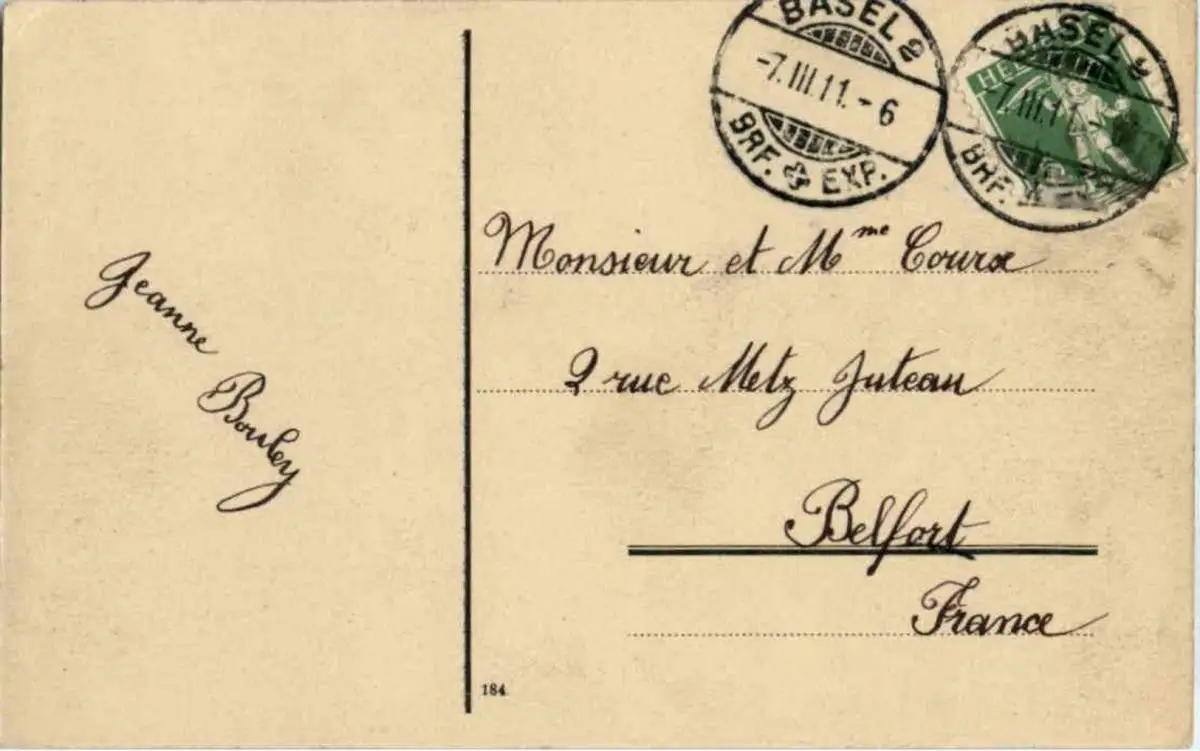 BASEL 2
-7.III.11.-6
BRF. EXP.
BASEL 2
-7.III.11
BRF.
HEL
Monsieur et Mme Courx
2 rue Metz Juteau
Belfort
France
Jeanne
Bouley
184